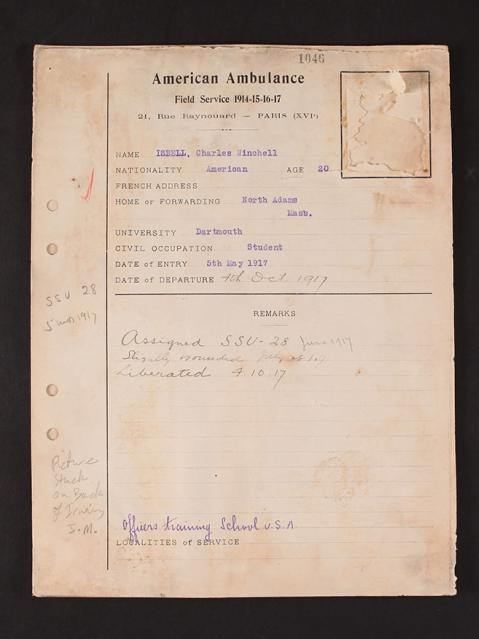 1046
American Ambulance
Field Service 1914-15-16-17
21, Rue Raynouard — PARIS (XVIe)
NAME ISBELL, Charles Winchell
NATIONALITY American AGE 20
FRENCH ADDRESS
HOME or FORWARDING North Adams
Mass.
UNIVERSITY Dartmouth
CIVIL OCCUPATION Student
DATE of ENTRY 5th May 1917
DATE of DEPARTURE 4th Oct 1917
SSU 28
1917
REMARKS
Assigned SSU-28 June 1917
wounded
Liberated 4.10.17
Picture
stuck
on Back
of Irving
Officers training School U.S.A.
LOCALITIES of SERVICE